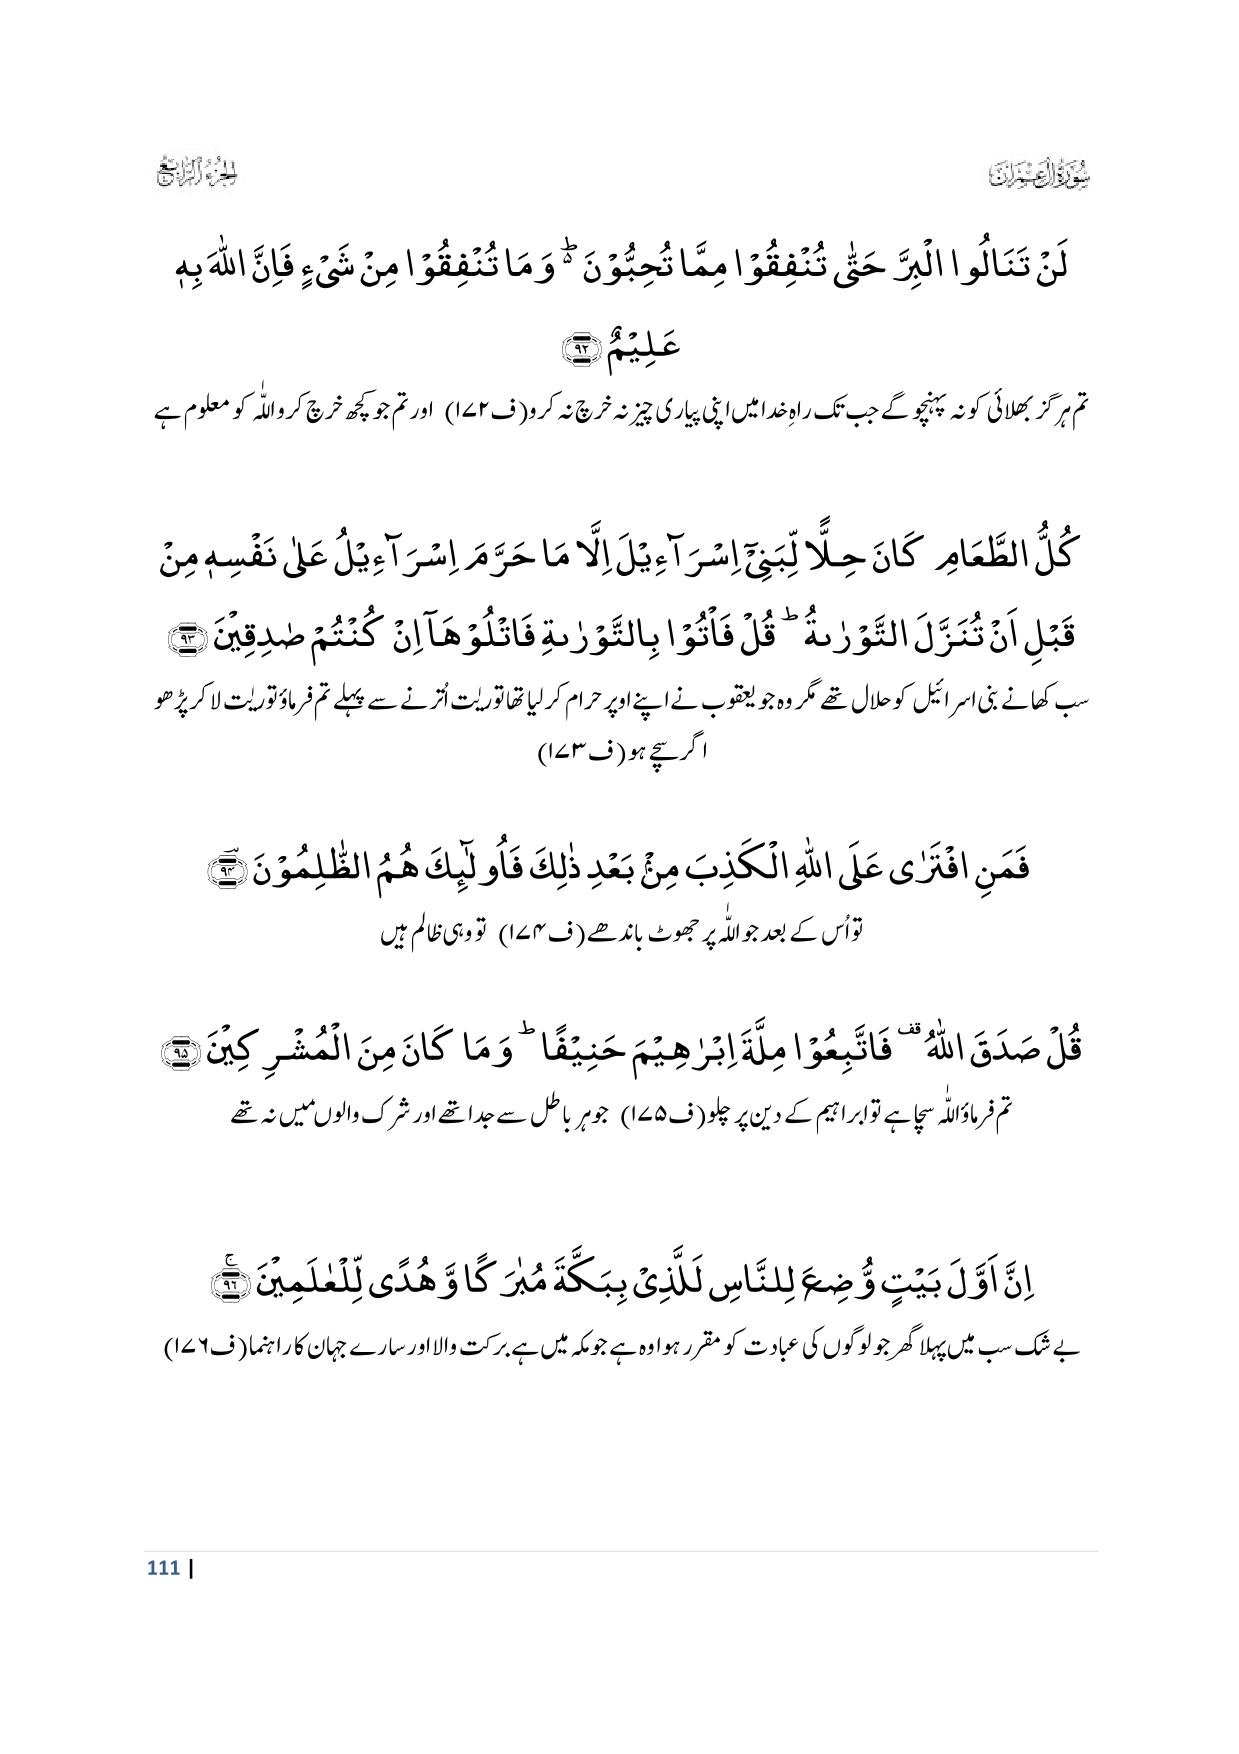 سُوْرَةُ اٰلِ عِمْرَان
الجُزْءُ الرَّابِع
لَنْ تَنَالُوا الْبِرَّ حَتّٰى تُنْفِقُوْا مِمَّا تُحِبُّوْنَ ؕ۬ وَ مَا تُنْفِقُوْا مِنْ شَیْءٍ فَاِنَّ اللّٰهَ بِهٖ
عَلِیْمٌ ﴿۹۲﴾
تم ہرگز بھلائی کو نہ پہنچو گے جب تک راہِ خدا میں اپنی پیاری چیز نہ خرچ نہ کرو (ف۱۷۲) اور تم جو کچھ خرچ کرو اللّٰہ کو معلوم ہے
كُلُّ الطَّعَامِ كَانَ حِلًّا لِّبَنِیْۤ اِسْرَآءِیْلَ اِلَّا مَا حَرَّمَ اِسْرَآءِیْلُ عَلٰى نَفْسِهٖ مِنْ
قَبْلِ اَنْ تُنَزَّلَ التَّوْرٰىةُ ؕ قُلْ فَاْتُوْا بِالتَّوْرٰىةِ فَاتْلُوْهَاۤ اِنْ كُنْتُمْ صٰدِقِیْنَ ﴿۹۳﴾
سب کھانے بنی اسرائیل کو حلال تھے مگر وہ جو یعقوب نے اپنے اوپر حرام کر لیا تھا توریٰت اُترنے سے پہلے تم فرماؤ توریٰت لا کر پڑھو
اگر سچے ہو (ف۱۷۳)
فَمَنِ افْتَرٰى عَلَى اللّٰهِ الْكَذِبَ مِنْۢ بَعْدِ ذٰلِكَ فَاُولٰٓىِٕكَ هُمُ الظّٰلِمُوْنَ ﴿۹۴﴾ؔ
تو اُس کے بعد جو اللّٰہ پر جھوٹ باندھے (ف۱۷۴) تو وہی ظالم ہیں
قُلْ صَدَقَ اللّٰهُ ۫ فَاتَّبِعُوْا مِلَّةَ اِبْرٰهِیْمَ حَنِیْفًا ؕ وَ مَا كَانَ مِنَ الْمُشْرِكِیْنَ ﴿۹۵﴾
تم فرماؤ اللّٰہ سچا ہے تو ابراہیم کے دین پر چلو (ف۱۷۵) جو ہر باطل سے جدا تھے اور شرک والوں میں نہ تھے
اِنَّ اَوَّلَ بَیْتٍ وُّضِعَ لِلنَّاسِ لَلَّذِیْ بِبَكَّةَ مُبٰرَكًا وَّ هُدًى لِّلْعٰلَمِیْنَ ﴿۹۶﴾ۚ
بے شک سب میں پہلا گھر جو لوگوں کی عبادت کو مقرر ہوا وہ ہے جو مکہ میں ہے برکت والا اور سارے جہان کا راہنما (ف۱۷۶)
111 |